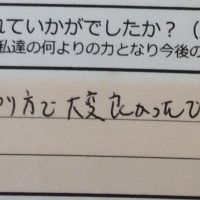 れていかがでしたか？（
私達の何よりの力となり今後の
り方で大変良かったで